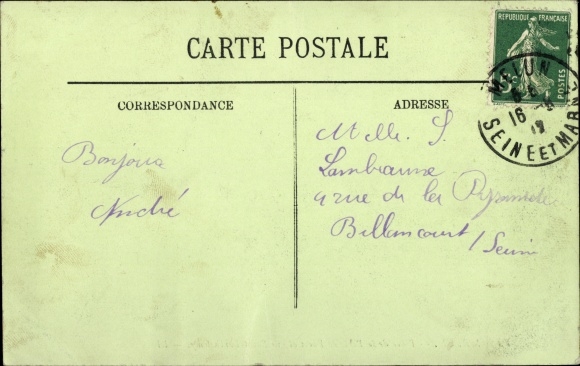 CARTE POSTALE
RÉPUBLIQUE FRANÇAISE
5c
POSTES
MELUN
16
SEINE ET MARNE
CORRESPONDANCE
ADRESSE
Bonjour
André
Melle. S.
4 rue de la Pyramide
Billancourt / Seine